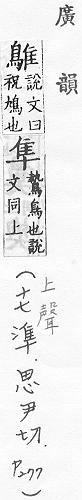 廣韻
鵻
說文曰
祝鳩也
隼
鷙鳥也說
文同上
上聲
(十七準.思尹切.P277)